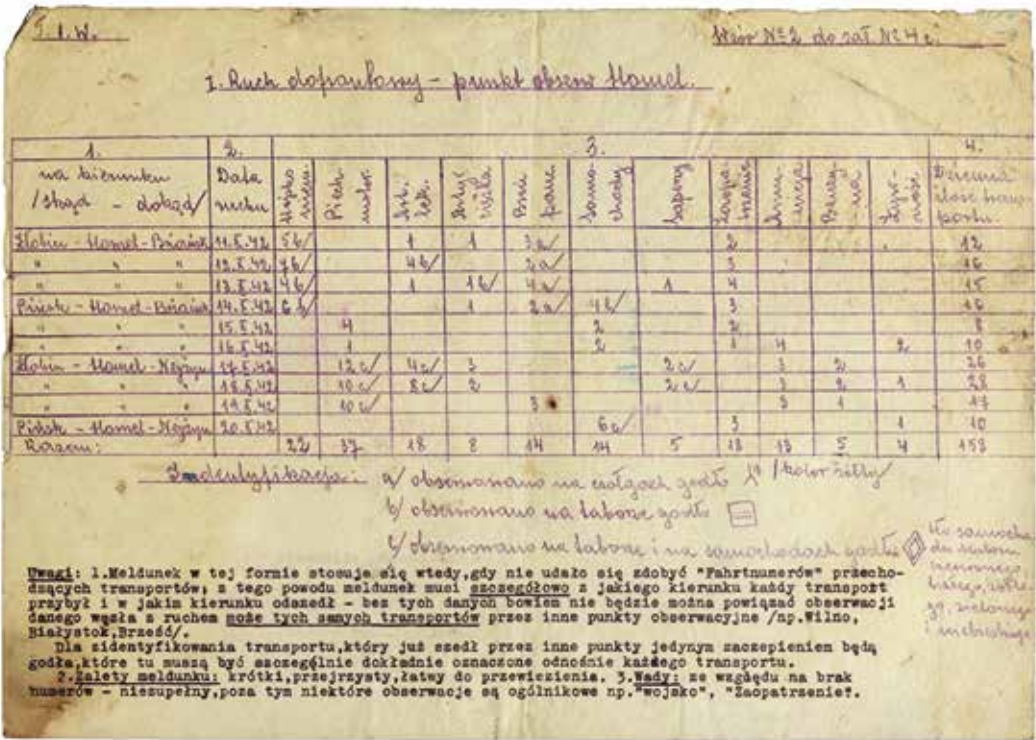 S.I.W.
Wzór № 2 do zał. № 4 c.
I. Ruch dofrontowy – punkt obserw. Homel.
1. 2. 3. 4.
na kierunku /skąd – dokąd/ Data ruchu Wojsko niem. Piech. motor. Art. lek. Broń panc. Samochody Sapery Zaopatrzenie Amunicja Benzyna Żywność Dzienna ilość transportu
Żłobin – Homel – Briańsk 11.X.42 5b/ 1 1 3a/ 2 12
" " " 12.X.42 7b/ 4b/ 2a/ 3 16
" " " 13.X.42 4b/ 1 1b/ 4a/ 1 4 15
Pińsk – Homel – Briańsk 14.X.42 6b/ 1 2a/ 4b/ 3 16
" " " 15.X.42 4 2 2 8
" " " 16.X.42 1 2 1 4 2 10
Żłobin – Homel – Nieżyn 17.X.42 12c/ 4c/ 3 2c/ 3 2 26
" " " 18.X.42 10c/ 8c/ 2 2c/ 3 2 1 28
" " " 19.X.42 10c/ 3 3 1 17
Pińsk – Homel – Nieżyn 20.X.42 6c/ 3 1 10
Razem: 22 37 18 8 14 14 5 18 13 5 4 158
Indentyfikacja: a/ obserwowano na czołgach godło /kolor żółty/
b/ obserwowano na taborze godło
c/ obserwowano na taborze i na samochodach godło
Uwagi: 1.Meldunek w tej formie stosuje się wtedy,gdy nie udało się zdobyć "Fahrtnumerów" przecho-
dzących transportów; z tego powodu meldunek musi szczegółowo z jakiego kierunku każdy transport
przybył i w jakim kierunku odszedł – bez tych danych bowiem nie będzie można powiązać obserwacji
danego węzła z ruchem może tych samych transportów przez inne punkty obserwacyjne /np.Wilno,
Białystok,Brześć/.
Dla zidentyfikowania transportu,który już szedł przez inne punkty jedynym zaczepieniem będą
godła,które tu muszą być szczególnie dokładnie oznaczone odnośnie każdego transportu.
2.Zalety meldunku: krótki,przejrzysty,łatwy do przewiezienia. 3.Wady: ze względu na brak
numerów – niezupełny,poza tym niektóre obserwacje są ogólnikowe np."wojsko", "Zaopatrzenie".